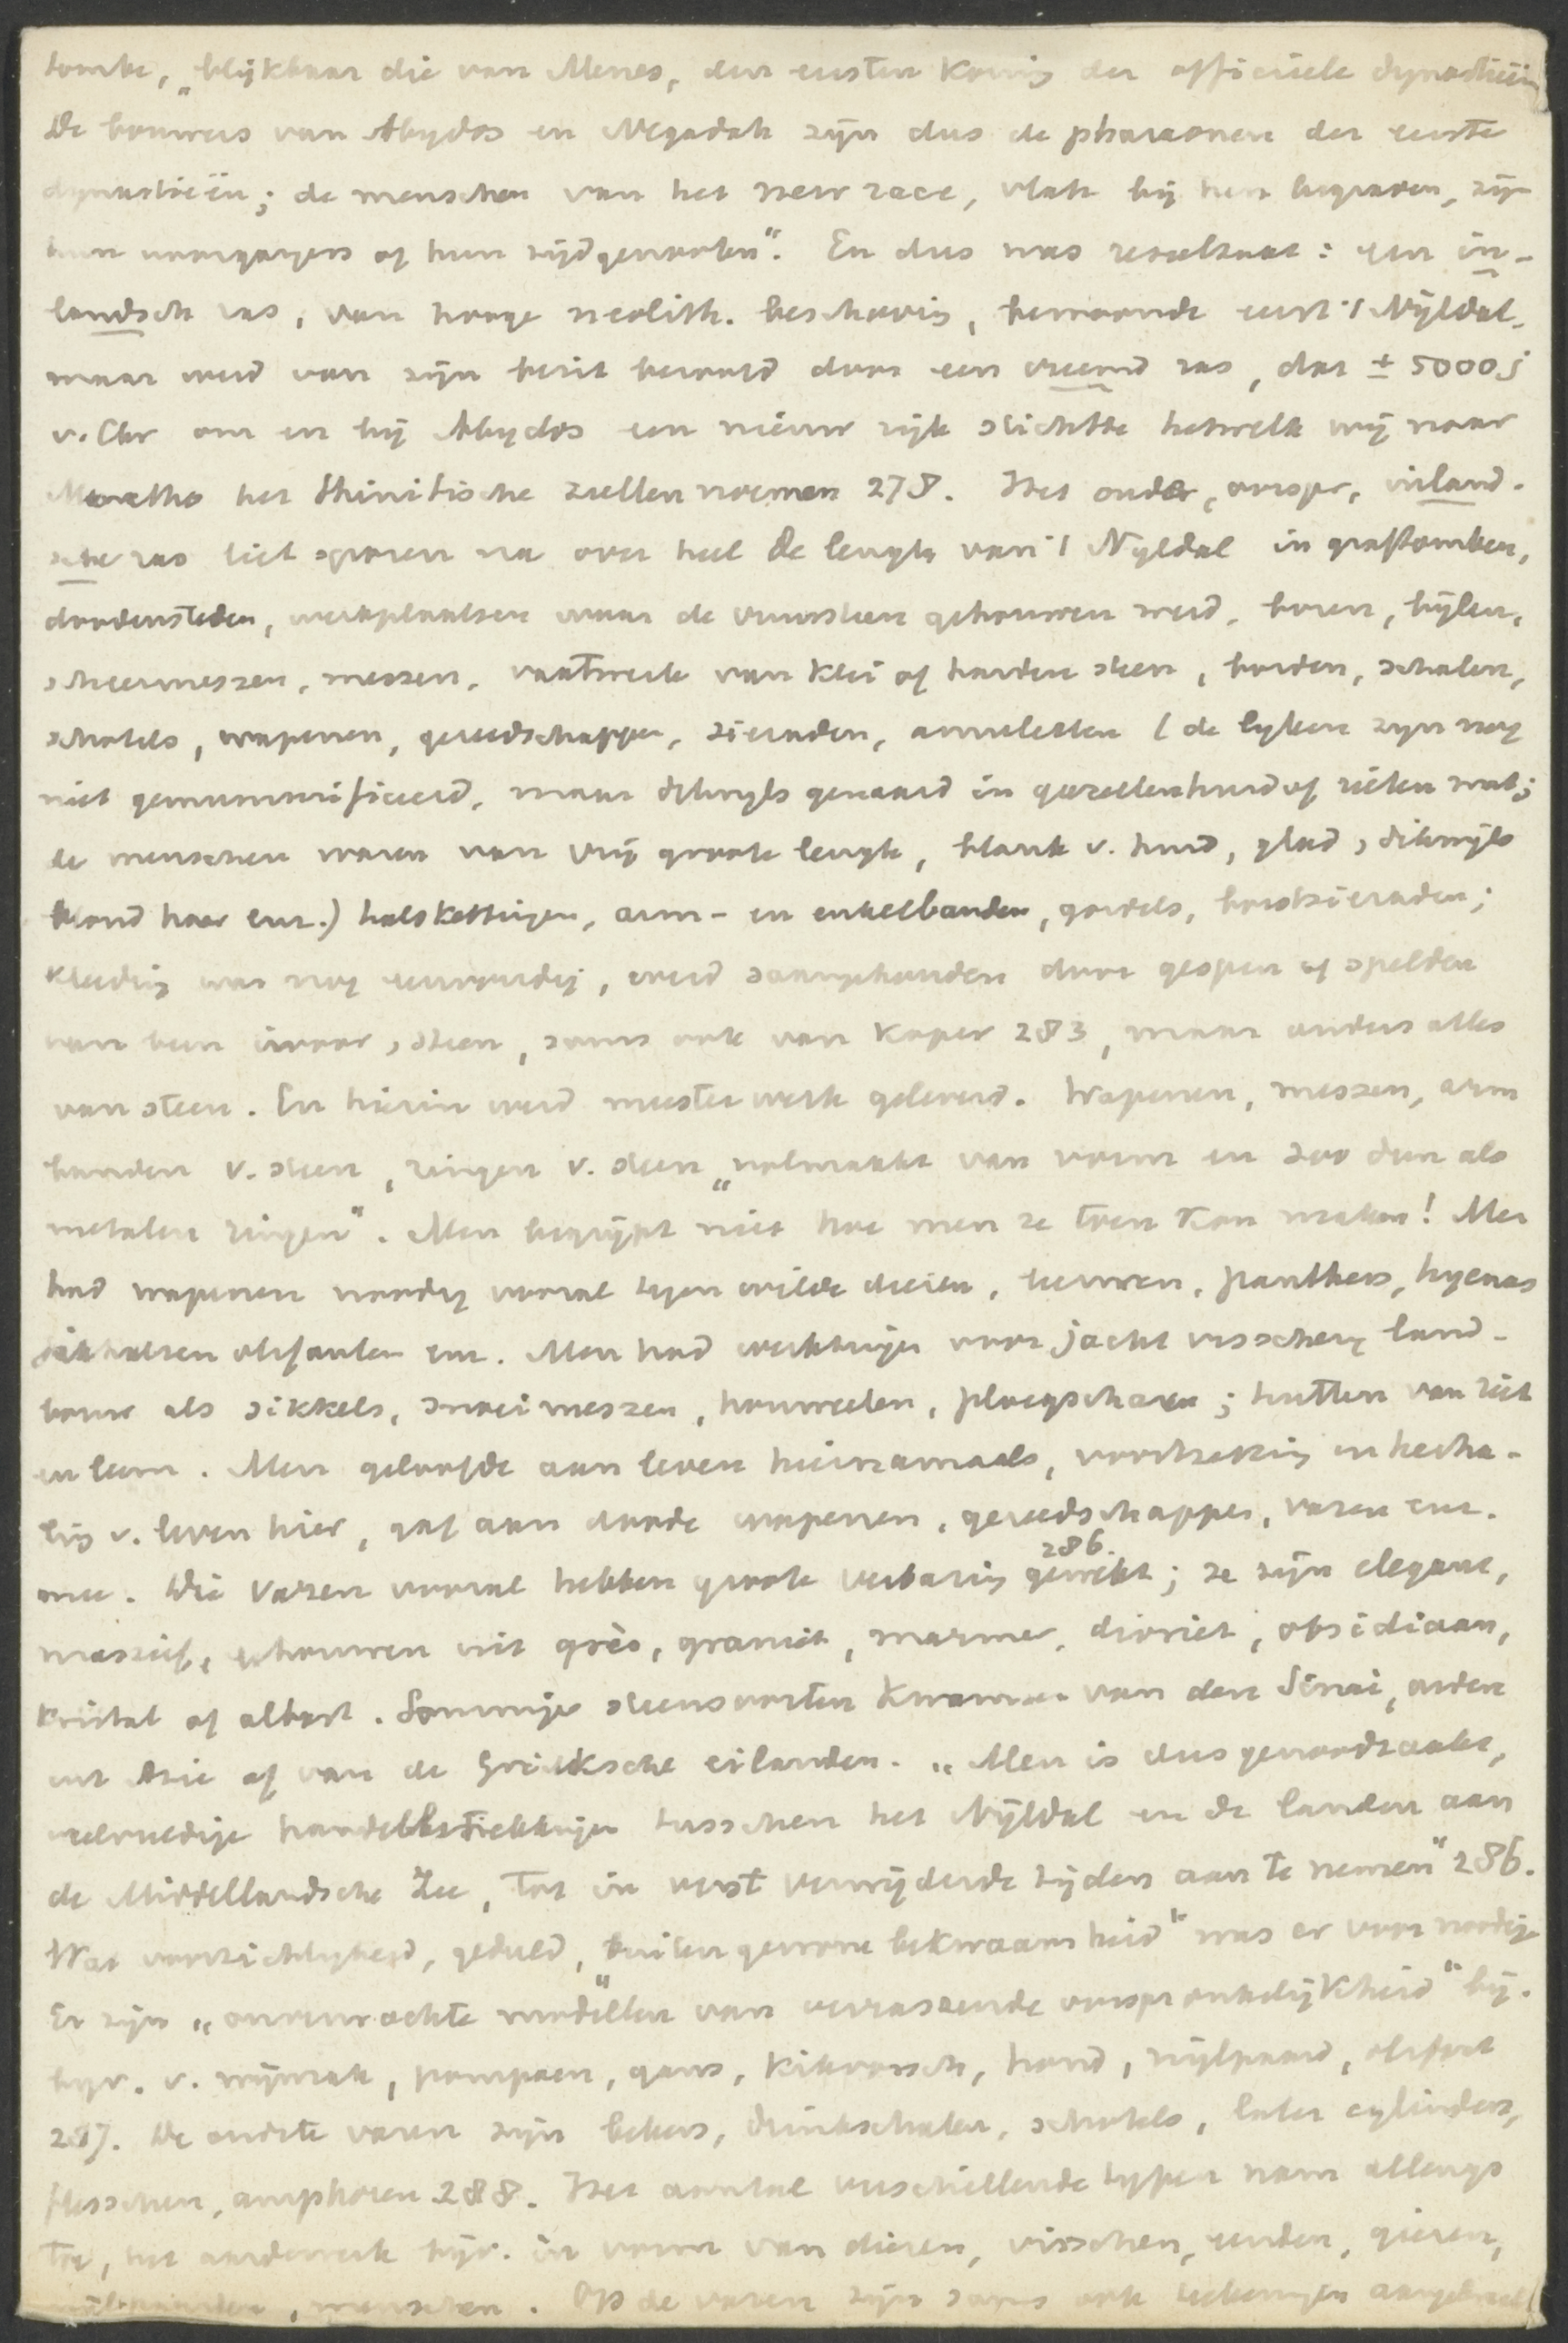 tombe, „blijkbaar die van Menes, den eersten koning der officieele dynastieën
De bouwers van Abydos en Negadah zijn dus de pharaonen der eerste
dynastieën; de menschen van het new race, vlak bij hen begraven, zijn
hun voorgangers of hun tijdgenooten“. En dus was resultaat: een in-
landsch ras, van hooge neolith. beschaving, bewoonde eerst 't Nijldal,
maar werd van zijn bezit beroofd door een vreemd ras, dat ± 5000 j
v. Chr om en bij Abydos een nieuw rijk stichtte hetwelk wij naar
Manetho het thinitische zullen noemen 278. Het oudere, oorspr, inland-
sche ras liet sporen na over heel de lengte van 't Nijldal in graftomben,
doodensteden, werkplaatsen waar de vuursteen gehouwen werd, boren, bijlen,
scheermessen, messen, vaatwerk van klei of harden steen, borden, schalen,
schotels, wapenen, gereedschappen, sieraden, amuletten (de lijken zijn nog
niet gemummificeerd, maar dikwijls genaaid in gazellenhuid of rieten mat;
de menschen waren van vrij groote lengte, blank v. huid, glad, dikwijls
blond haar enz.) halskettingen, arm- en enkelbanden, gordels, borstsieraden;
kleding was nog eenvoudig, werd saamgehouden door gespen of spelden
van been ivoor, steen, soms ook van koper 283, maar anders alles
van steen. En hierin werd meesterwerk geleverd. Wapenen, messen, arm
banden v. steen, ringen v. steen „volmaakt van vorm en zoo dun als
metalen ringen“. Men begrijpt niet hoe men ze toen kon maken! Men
had wapenen noodig vooral tegen wilde dieren, leeuwen, panthers, hyenas
jakhalzen olifanten enz. Men had werktuigen voor jacht visscherij land-
bouw als sikkels, snoeimessen, houweelen, ploegscharen; hutten van riet
en leem. Men geloofde aan leven hiernamaals, voortzetting en herha-
ling v. leven hier, gaf aan doode wapenen, gereedschappen, vazen enz.
mee. Die vazen vooral hebben groote verbazing gewekt 286.; ze zijn elegant,
massief, gehouwen uit grès, graniet, marmer, dioriet, obsidiaan,
kristal of albast. Sommige steensoorten kwamen van den Sinai, andere
uit Azie of van de Grieksche eilanden. „Men is dus genoodzaakt,
veelvuldige handelsbetrekkingen tusschen het Nijldal en de landen aan
de Middellandsche Zee, tot in verst verwijderde tijden aan te nemen“ 286.
Wat voorzichtigheid, geduld, „buitengewone bekwaamheid“ was er voor noodig
Er zijn „onverwachte modellen van verrassende oorspronkelijkheid“ bij.
bijv. v. wijnzak, pompoen, gans, kikvorsch, hond, nijlpaard, olifant
287. De oudste vazen zijn bekers, drinkschalen, schotels, later cylinders,
flesschen, amphoren 288. Het aantal verschillende typen nam allengs
toe, het aardewerk bijv. in vorm van dieren, visschen, eenden, gieren,
nijlpaarden, menschen. Op de vazen zijn soms ook teekeningen aangebracht